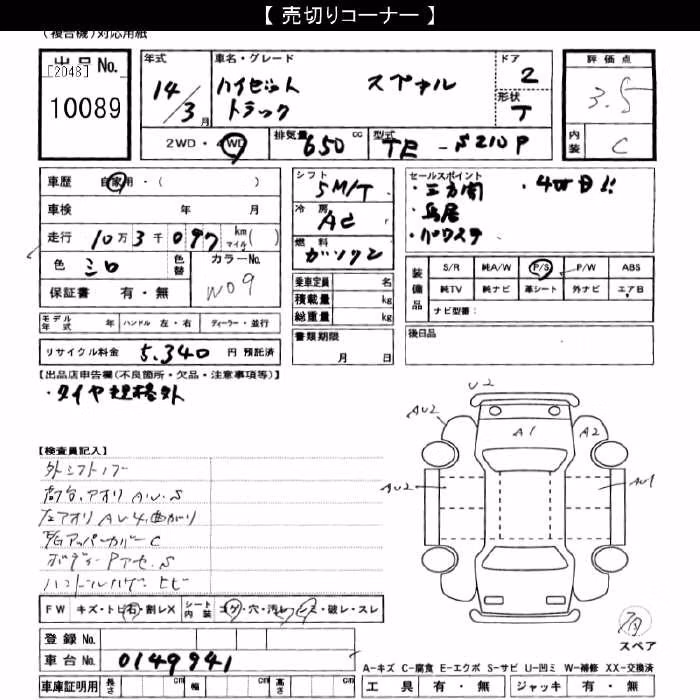 【 売切りコーナー 】
(複合機)対応用紙
出品No.
[2048]
10089
年式
14/3月
車名・グレード
ハイゼット トラック
スペシャル
ドア
2
形状
T
2WD・4WD
排気量
650 cc
型式
TE-S210P
評価点
3.5
内装
C
車歴 自家用・( )
車検 年 月
走行 10万3千097 km マイル( )
色 シロ
色替
カラーNo.
W09
保証書 有・無
シフト
5M/T
冷房
AC
燃料
ガソリン
乗車定員 名
積載量 kg
総重量 kg
セールスポイント
・三方開 ・4WD!!
・鳥居
・パワステ
装備品
S/R 純A/W P/S P/W ABS
純TV 純ナビ 革シート 外ナビ エアB
ナビ型番:
モデル年式 年 ハンドル 左・右 ディーラー・並行
書類期限
月 日
後日品
リサイクル料金 5.340 円 預託済
【出品店申告欄(不良箇所・欠品・注意事項等)】
・タイヤ規格外
【検査員記入】
外シフトノブ
荷台,アオリ AU.S
左アオリ AU4,曲がり
アッパーカバーC
ボディーPアセ.S
ハンドル ヒビ
U2
AU2
A1
A2
AU2
AU1
FW キズ・トビ石・割レX シート内装 コゲ・穴・汚レ・シミ・破レ・スレ
登録No.
車台No. 0149941
車庫証明用 長さ cm 幅 cm 高さ cm
スペア
A-キズ C-腐食 E-エクボ S-サビ U-凹ミ W-補修 XX-交換済
工具 有・無 ジャッキ 有・無